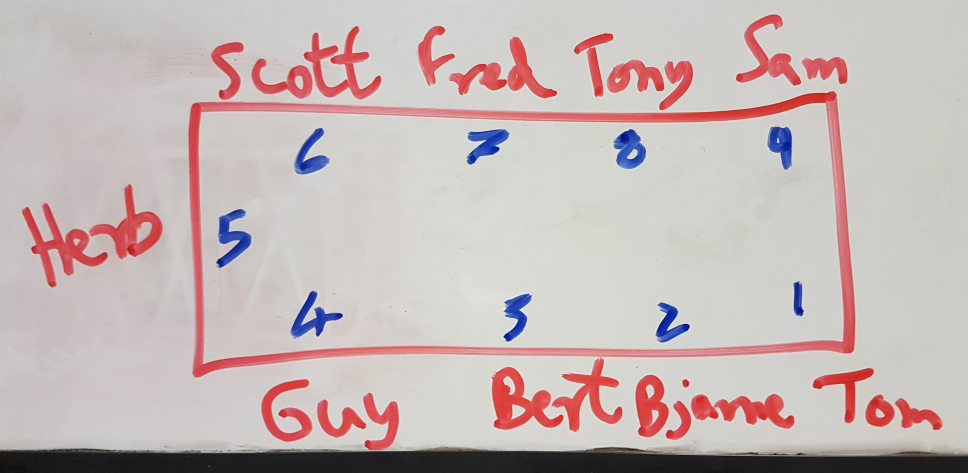 Scott Fred Tony Sam
6 7 8 9
Herb 5
4 3 2 1
Guy Bert Bjarne Tom